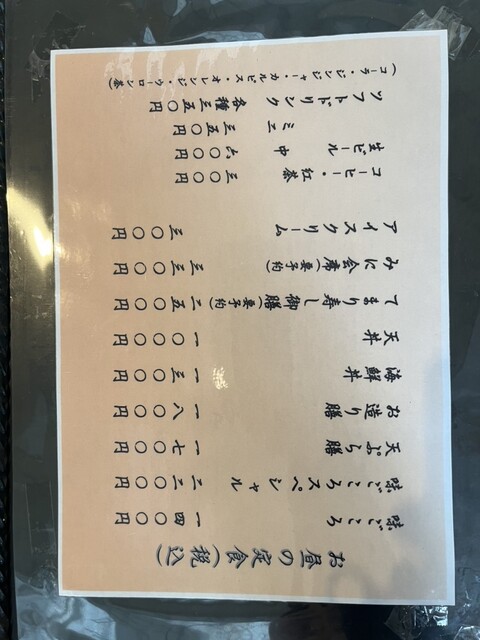 お昼の定食（税込）
味ごころ 一四〇〇円
味ごころスペシャル 二二〇〇円
天ぷら膳 一七〇〇円
お造り膳 一八〇〇円
海鮮丼 一三〇〇円
天丼 一〇〇〇円
てまり寿し御膳（要予約） 二五〇〇円
みに会席（要予約） 三三〇〇円
アイスクリーム 三〇〇円
コーヒー・紅茶 三〇〇円
生ビール 中 六〇〇円
ミニ 三五〇円
ソフトドリンク 各種三五〇円
（コーラ・ジンジャー・カルピス・オレンジ・ウーロン茶）